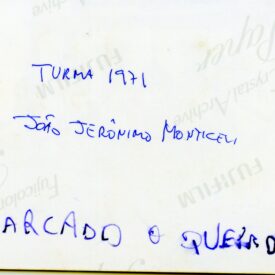 TURMA 1971
JOÃO JERÔNIMO MONTICELI
ARCADO O
Crystal Archive
Paper
FUJIFILM
FUJIFILM
Fujicolor